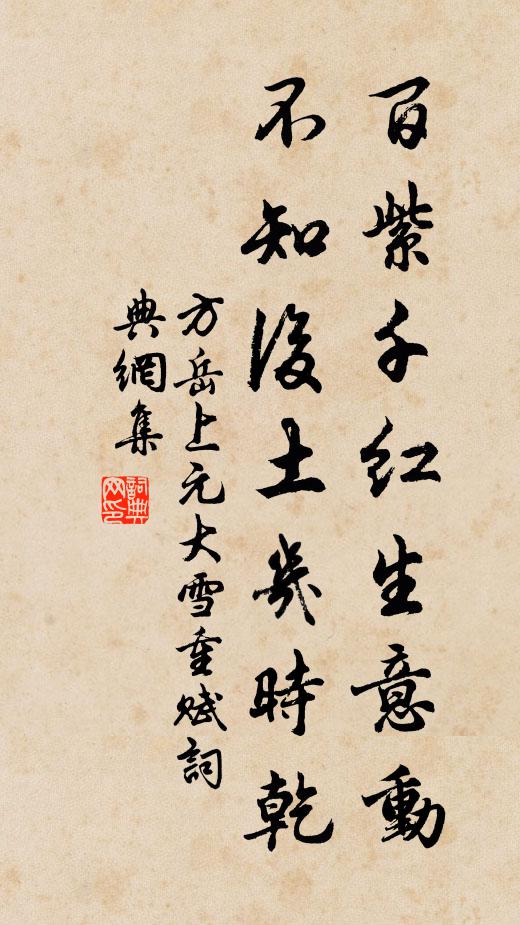 百紫千紅生意動
不知後土幾時乾
方岳上元大雪重賦詞
典網集
詞典
网印